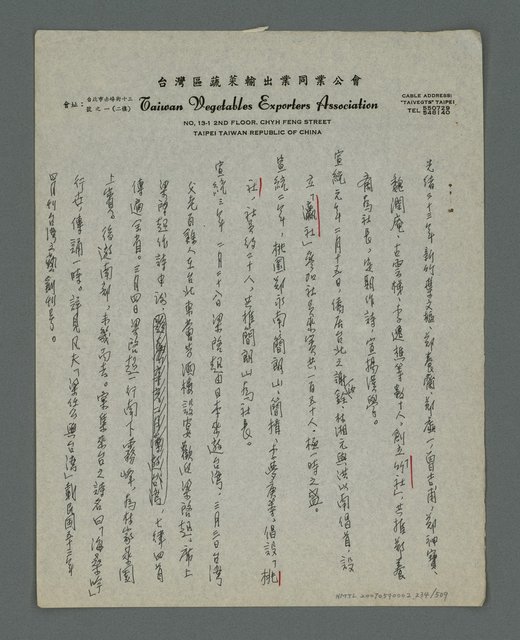 台灣區蔬菜輸出業同業公會
會址：台北市赤峰街十三號之一(二樓)
Taiwan Vegetables Exporters Association
NO. 13-1 2ND FLOOR. CHYH FENG STREET
TAIPEI TAIWAN REPUBLIC OF CHINA
CABLE ADDRESS:
"TAIVEGTS" TAIPEI
TEL 550729
548140
光緒二十三年，新竹集文編，鄭養齋、鄭虛一、曾吉甫、鄭神寶、
魏潤庵、古雲梯、李遜樵等數十人，創立「竹社」，共推鄭養
齋為社長，定期作詩，宣揚漢學。
宣統元年二月十五日，僑居台北之謝、林湘元與洪以南倡首，設
立「瀛社」參加社員來賓共一百五十人，極一時之盛。
宣統二年，桃園鄭永南、簡朗山、簡楫、李夢庚等，倡設「桃
社，社員約二十人，共推簡朗山為社長。
宣統三年二月二十八日梁啟超由日本來遊台灣，三月三日台灣
父老百餘人在台北東薈芳酒樓設宴歡迎梁啟超，席上
梁啟超作詩申謝，七律四首
傳遍全省。三月四日梁啟超一行南下霧峰，為林家萊園
上賓。後遊南部，未幾而去。案集來台之詩名曰「海桑吟」
行世，傳誦一時。詳見凡夫「梁任公與台灣」載民國五十三年
四月刊台灣文藝創刊號。
NMTL 20090590002 234/509